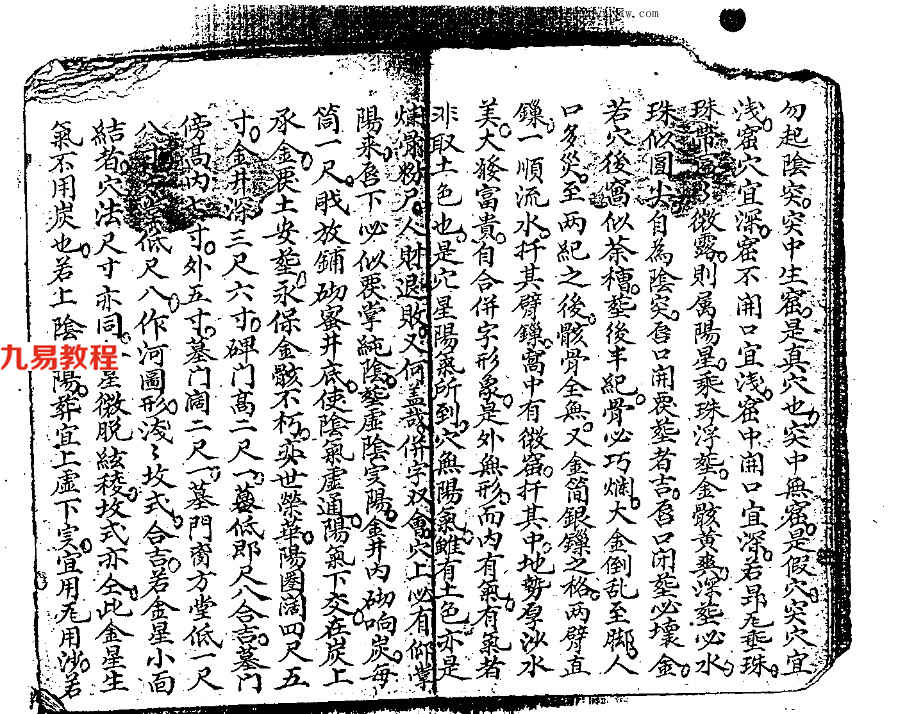 勿起陰突。突中生窟。是真穴也。突中無窟。是假穴。突穴宜
浅。窟穴宜深。窟不開口宜浅。窟中開口宜深。若昂尨垂珠。
珠帶 微露。則属陽星。乘珠浮塟。金骸黄爽。深塟必水。
珠似圓尖自為陰突。唇口開要塟者吉。唇口闭塟必壊。金
若穴後窩似茶槽。塟後半紀骨必巧爛。大金倒乱至脚。人
口多災。至两紀之後骸骨全無。又金筒銀鏁之格。两臂直
鏁一順流水。扦其臂鏁窩中有微窟。扦其中。地势厚沙水
美。大發富貴。自合併字形象。是外無形。而内有氣。有氣者
非取土色也。是穴星陽氣所到。穴無陽氣。雖有土色亦是
爛骨粉尸。人財退敗。又何益哉。併字双會。穴上必有仰掌
陽来。唇下必似要掌純陰。塟虚陰实陽。金井内砌响炭。每
筒一尺。戝放鋪砌蜜井底。使陰氣虚通。陽氣下交。在炭上
承金要土安塟。永保金骸不朽。奕世榮華。陽圏阔四尺五
寸。金井深三尺六寸。碑门髙二尺一。墓低郎尺八合吉。墓门
傍髙内 寸。外五寸。墓门阔二尺一。墓門窗方堂低一尺
八。 低尺八。作河圖形。浅〻坟式合吉。若金星小面
結者。穴法尺寸亦同。 星微脱絃稜。坟式亦仝。此金星生
氣不用炭也。若上陰 陽。葬宜上虚下实。宜用尨用沙。若
九易教程